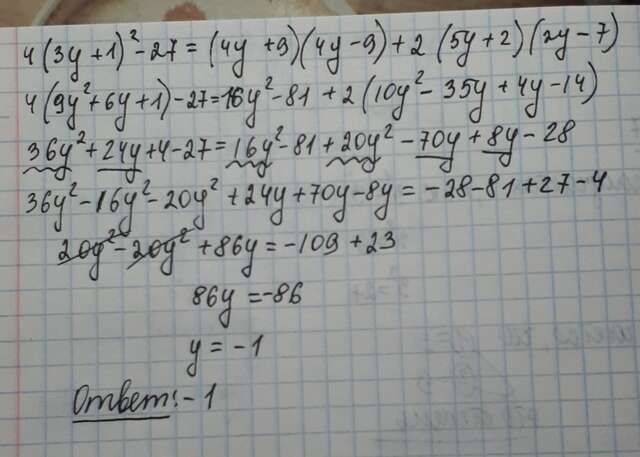 4(3y+1)²-27=(4y+9)(4y-9)+2(5y+2)(2y-7)
4(9y²+6y+1)-27=16y²-81+2(10y²-35y+4y-14)
36y²+24y+4-27=16y²-81+20y²-70y+8y-28
36y²-16y²-20y²+24y+70y-8y=-28-81+27-4
20y²-20y²+86y=-109+23
86y=-86
y=-1
Ответ:-1